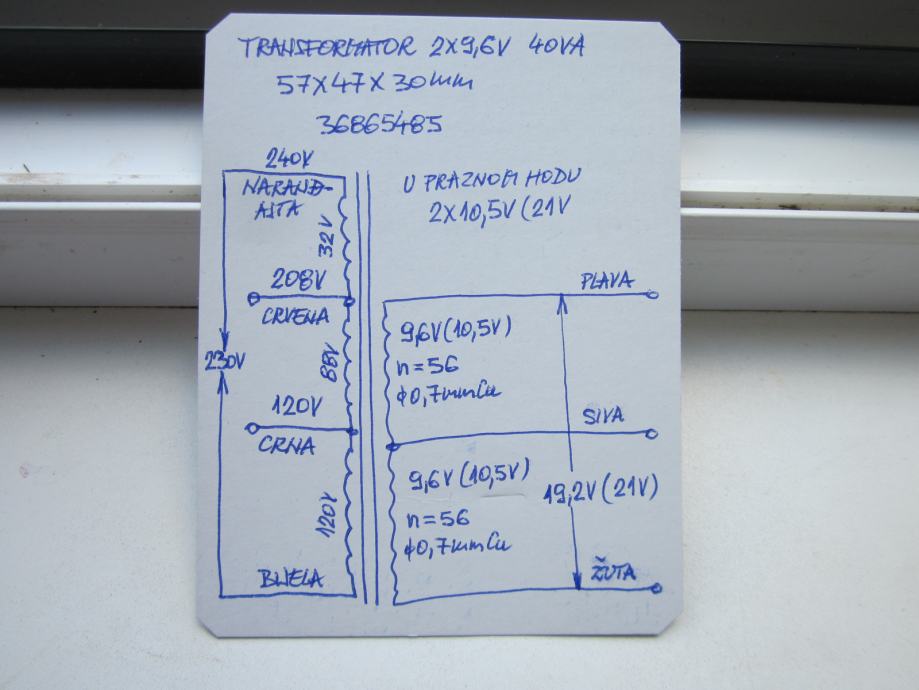 TRANSFORMATOR 2X9,6V 40VA
57X47X30mm
36865485
240V
NARAND-
ASTA
32V
208V
CRVENA
88V
230V
120V
CRNA
120V
BIJELA
U PRAZNOM HODU
2X10,5V(21V
PLAVA
9,6V(10,5V)
n=56
ϕ0,7mmCu
SIVA
9,6V(10,5V)
19,2V(21V)
n=56
ϕ0,7mmCu
ŽUTA